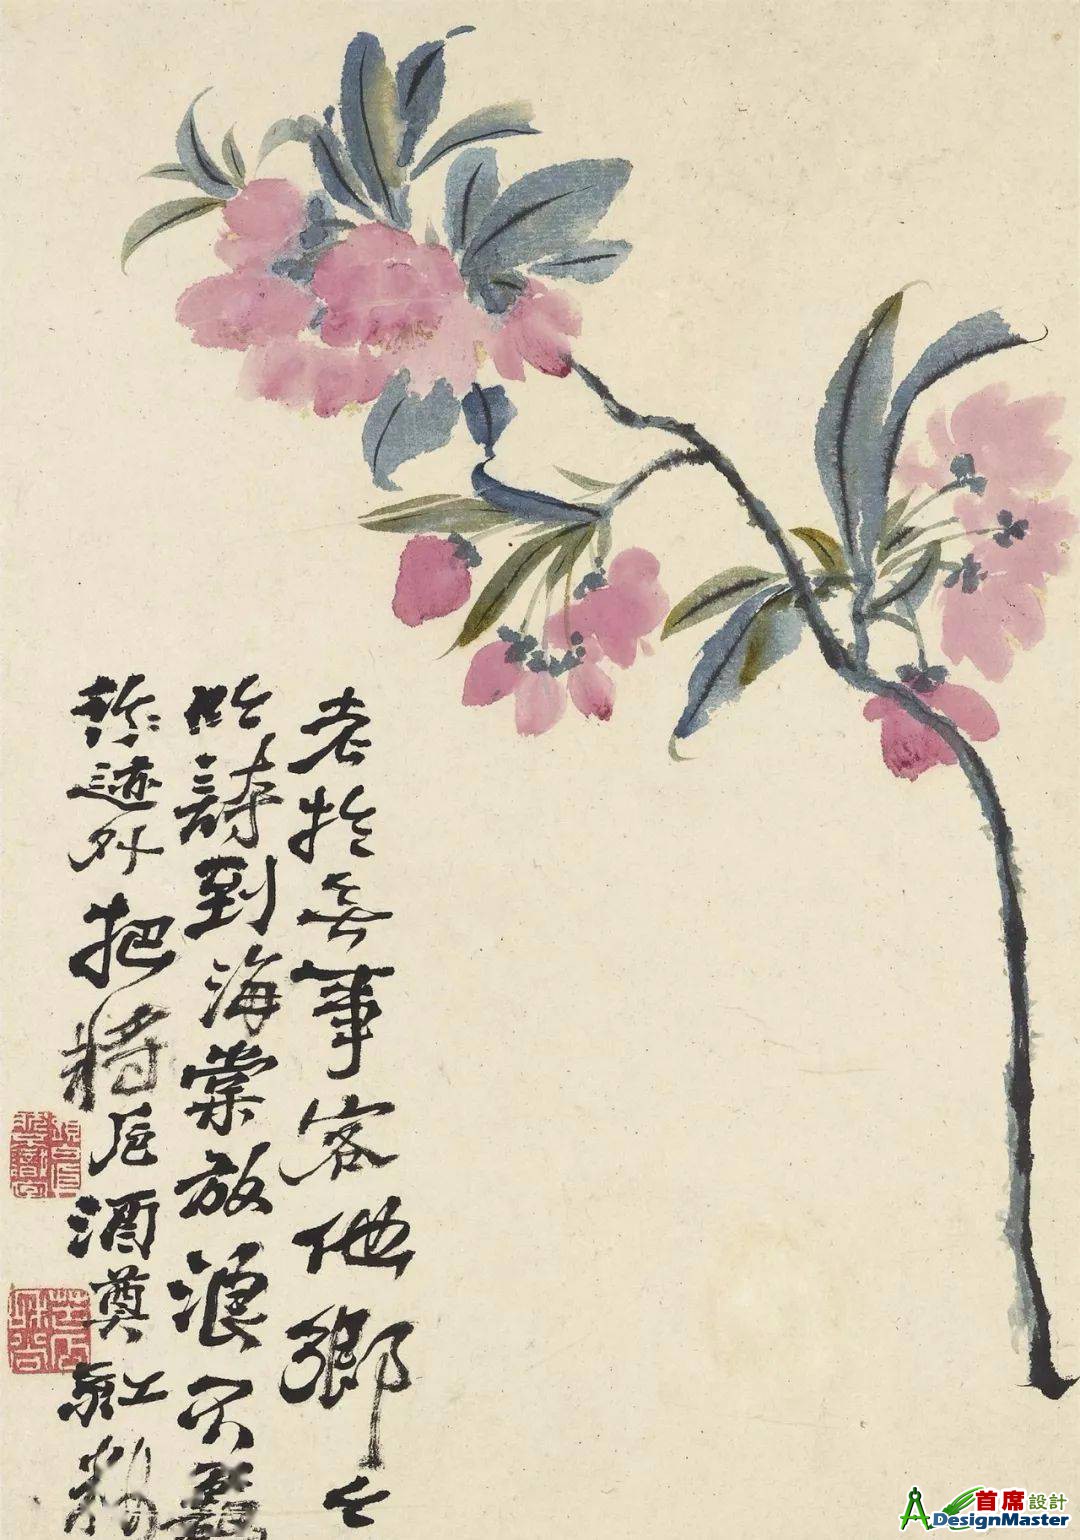 老於無事客他鄉今
吟詩到海棠放浪不羈
形迹外把將卮酒奠紅
首席設計
DesignMaster